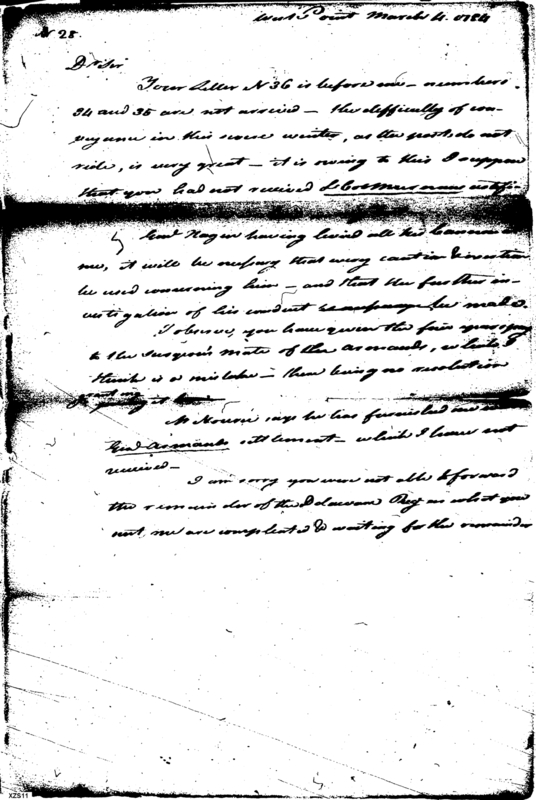 West Point March 4. 1784
No 28.
Dr Sir
Your Letter No 36 is before me - numbers
34 and 35 are not arrived - the difficulty of con-
veyance in this severe winter, as the posts do not
ride, is very great - it is owing to this I suppose
that you had not received
Genl Hazen having lived all the
me, it will be necessary that every caution &
be used concerning him - and that the further in-
vestigation of his conduct be made.
I observe, you have given the five years pay
to the Surgeon's mate of the Armands, which I
think is a mistake - there being no resolution
granting
Mr Nourse says he has furnished me
Genl Armands settlement - which I have not
received -
I am sorry you were not able to forward
the remainder of the Delaware Reg as what you
sent me are compleated & waiting for the remainder
XZS11